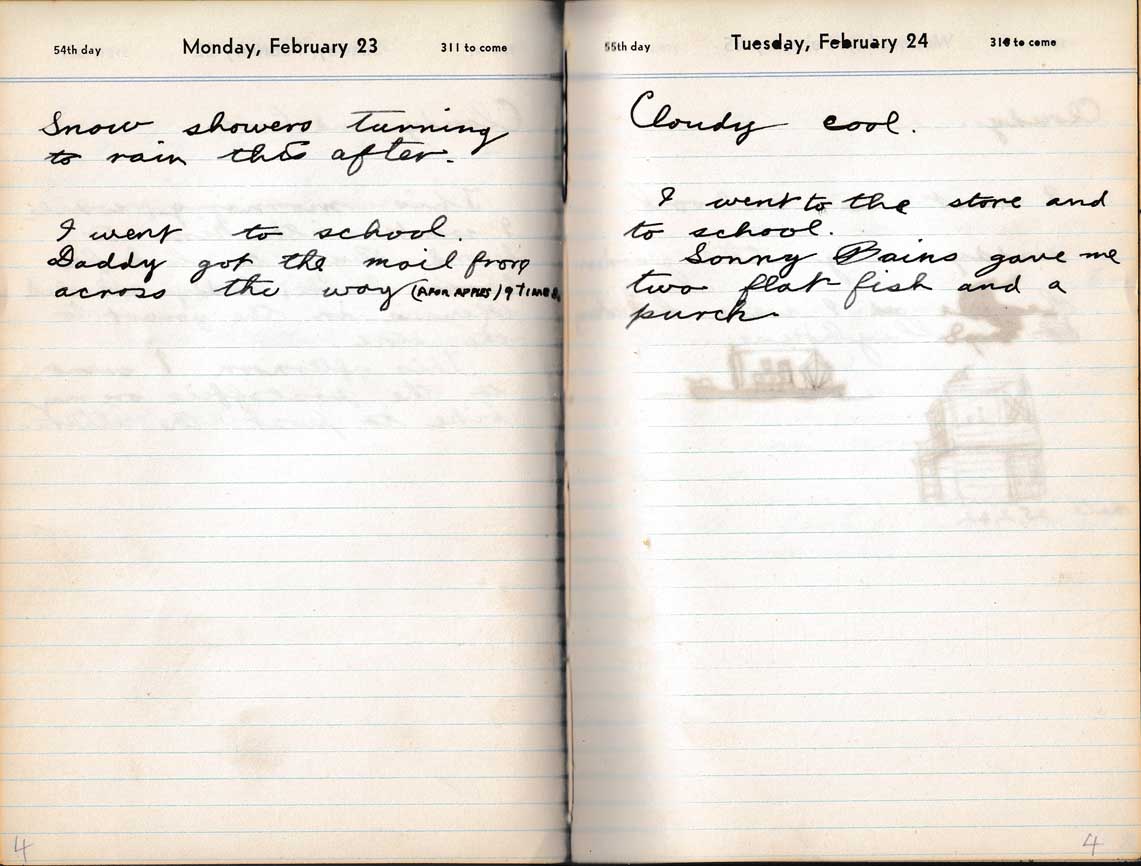 54th day Monday, February 23 311 to come
Snow showers turning
to rain this after.
I went to school.
Daddy got the mail from
across the way (AFOR APPLES) 9 TIMES.
4
55th day Tuesday, February 24 310 to come
Cloudy cool.
I went to the store and
to school.
Sonny Bains gave me
two flat fish and a
purch.
4